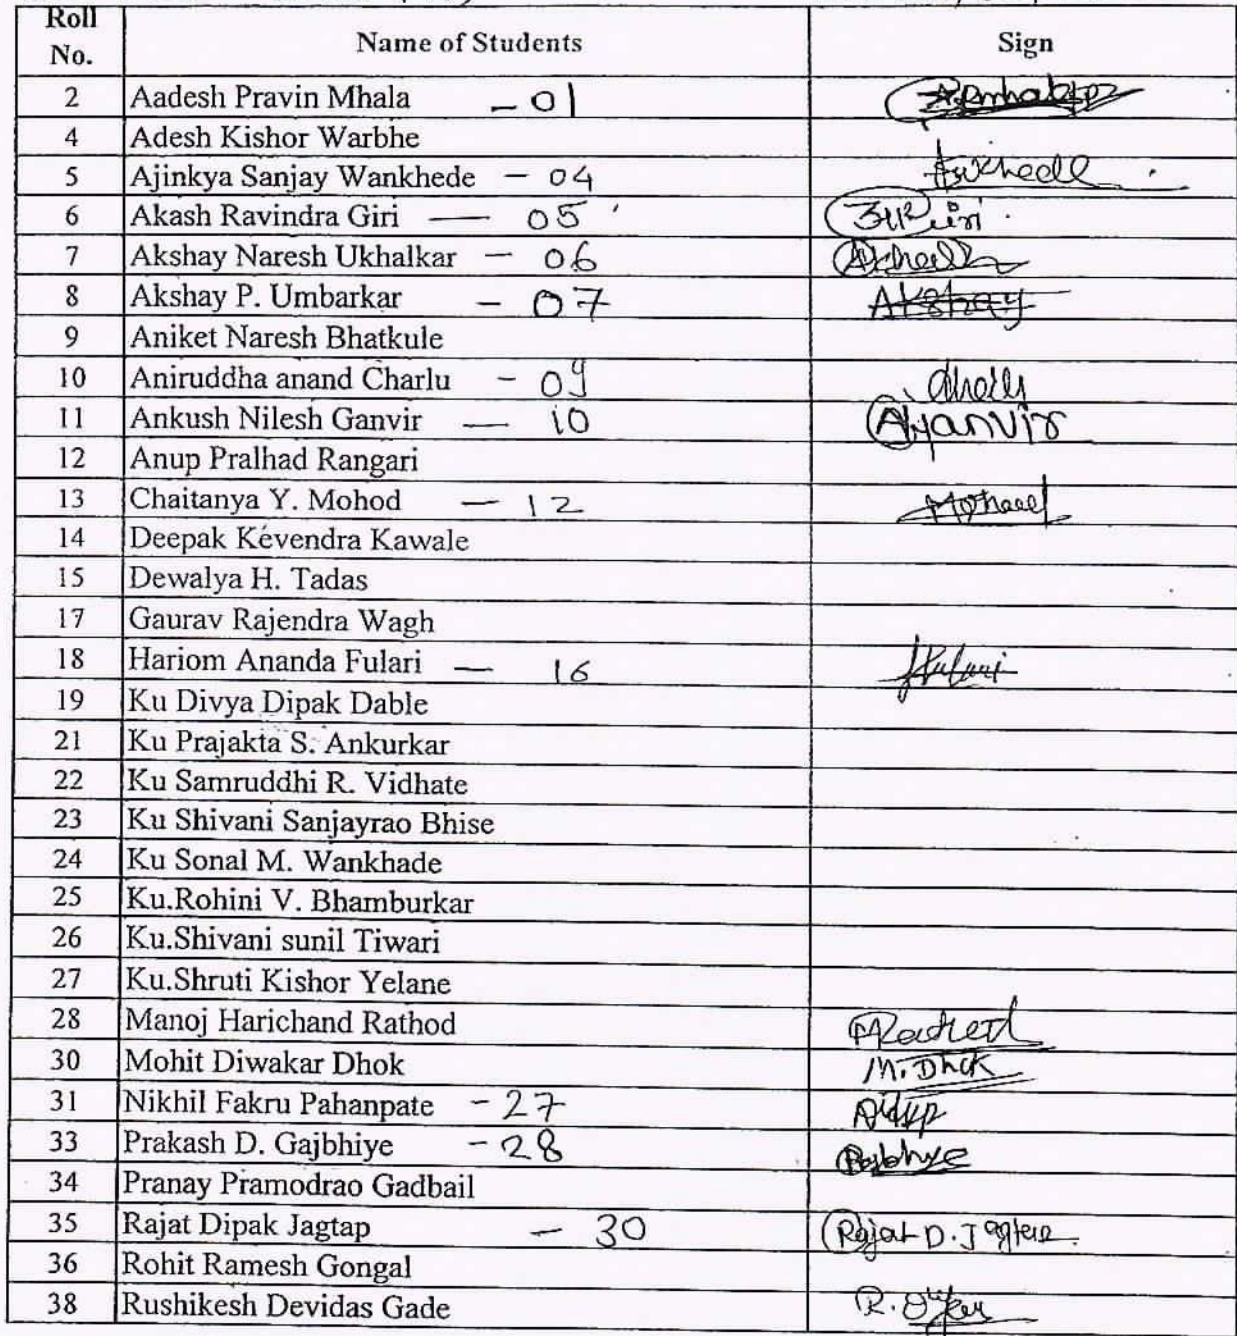 Roll No. Name of Students Sign
2 Aadesh Pravin Mhala - 01
4 Adesh Kishor Warbhe
5 Ajinkya Sanjay Wankhede - 04
6 Akash Ravindra Giri — 05
7 Akshay Naresh Ukhalkar - 06
8 Akshay P. Umbarkar - 07 Akshay
9 Aniket Naresh Bhatkule
10 Aniruddha anand Charlu - 09
11 Ankush Nilesh Ganvir — 10 AGanvir
12 Anup Pralhad Rangari
13 Chaitanya Y. Mohod — 12
14 Deepak Kévendra Kawale
15 Dewalya H. Tadas
17 Gaurav Rajendra Wagh
18 Hariom Ananda Fulari — 16 HFulari
19 Ku Divya Dipak Dable
21 Ku Prajakta S. Ankurkar
22 Ku Samruddhi R. Vidhate
23 Ku Shivani Sanjayrao Bhise
24 Ku Sonal M. Wankhade
25 Ku.Rohini V. Bhamburkar
26 Ku.Shivani sunil Tiwari
27 Ku.Shruti Kishor Yelane
28 Manoj Harichand Rathod
30 Mohit Diwakar Dhok M. Dhok
31 Nikhil Fakru Pahanpate - 27
33 Prakash D. Gajbhiye - 28
34 Pranay Pramodrao Gadbail
35 Rajat Dipak Jagtap - 30 Rajat D. Jagtap
36 Rohit Ramesh Gongal
38 Rushikesh Devidas Gade